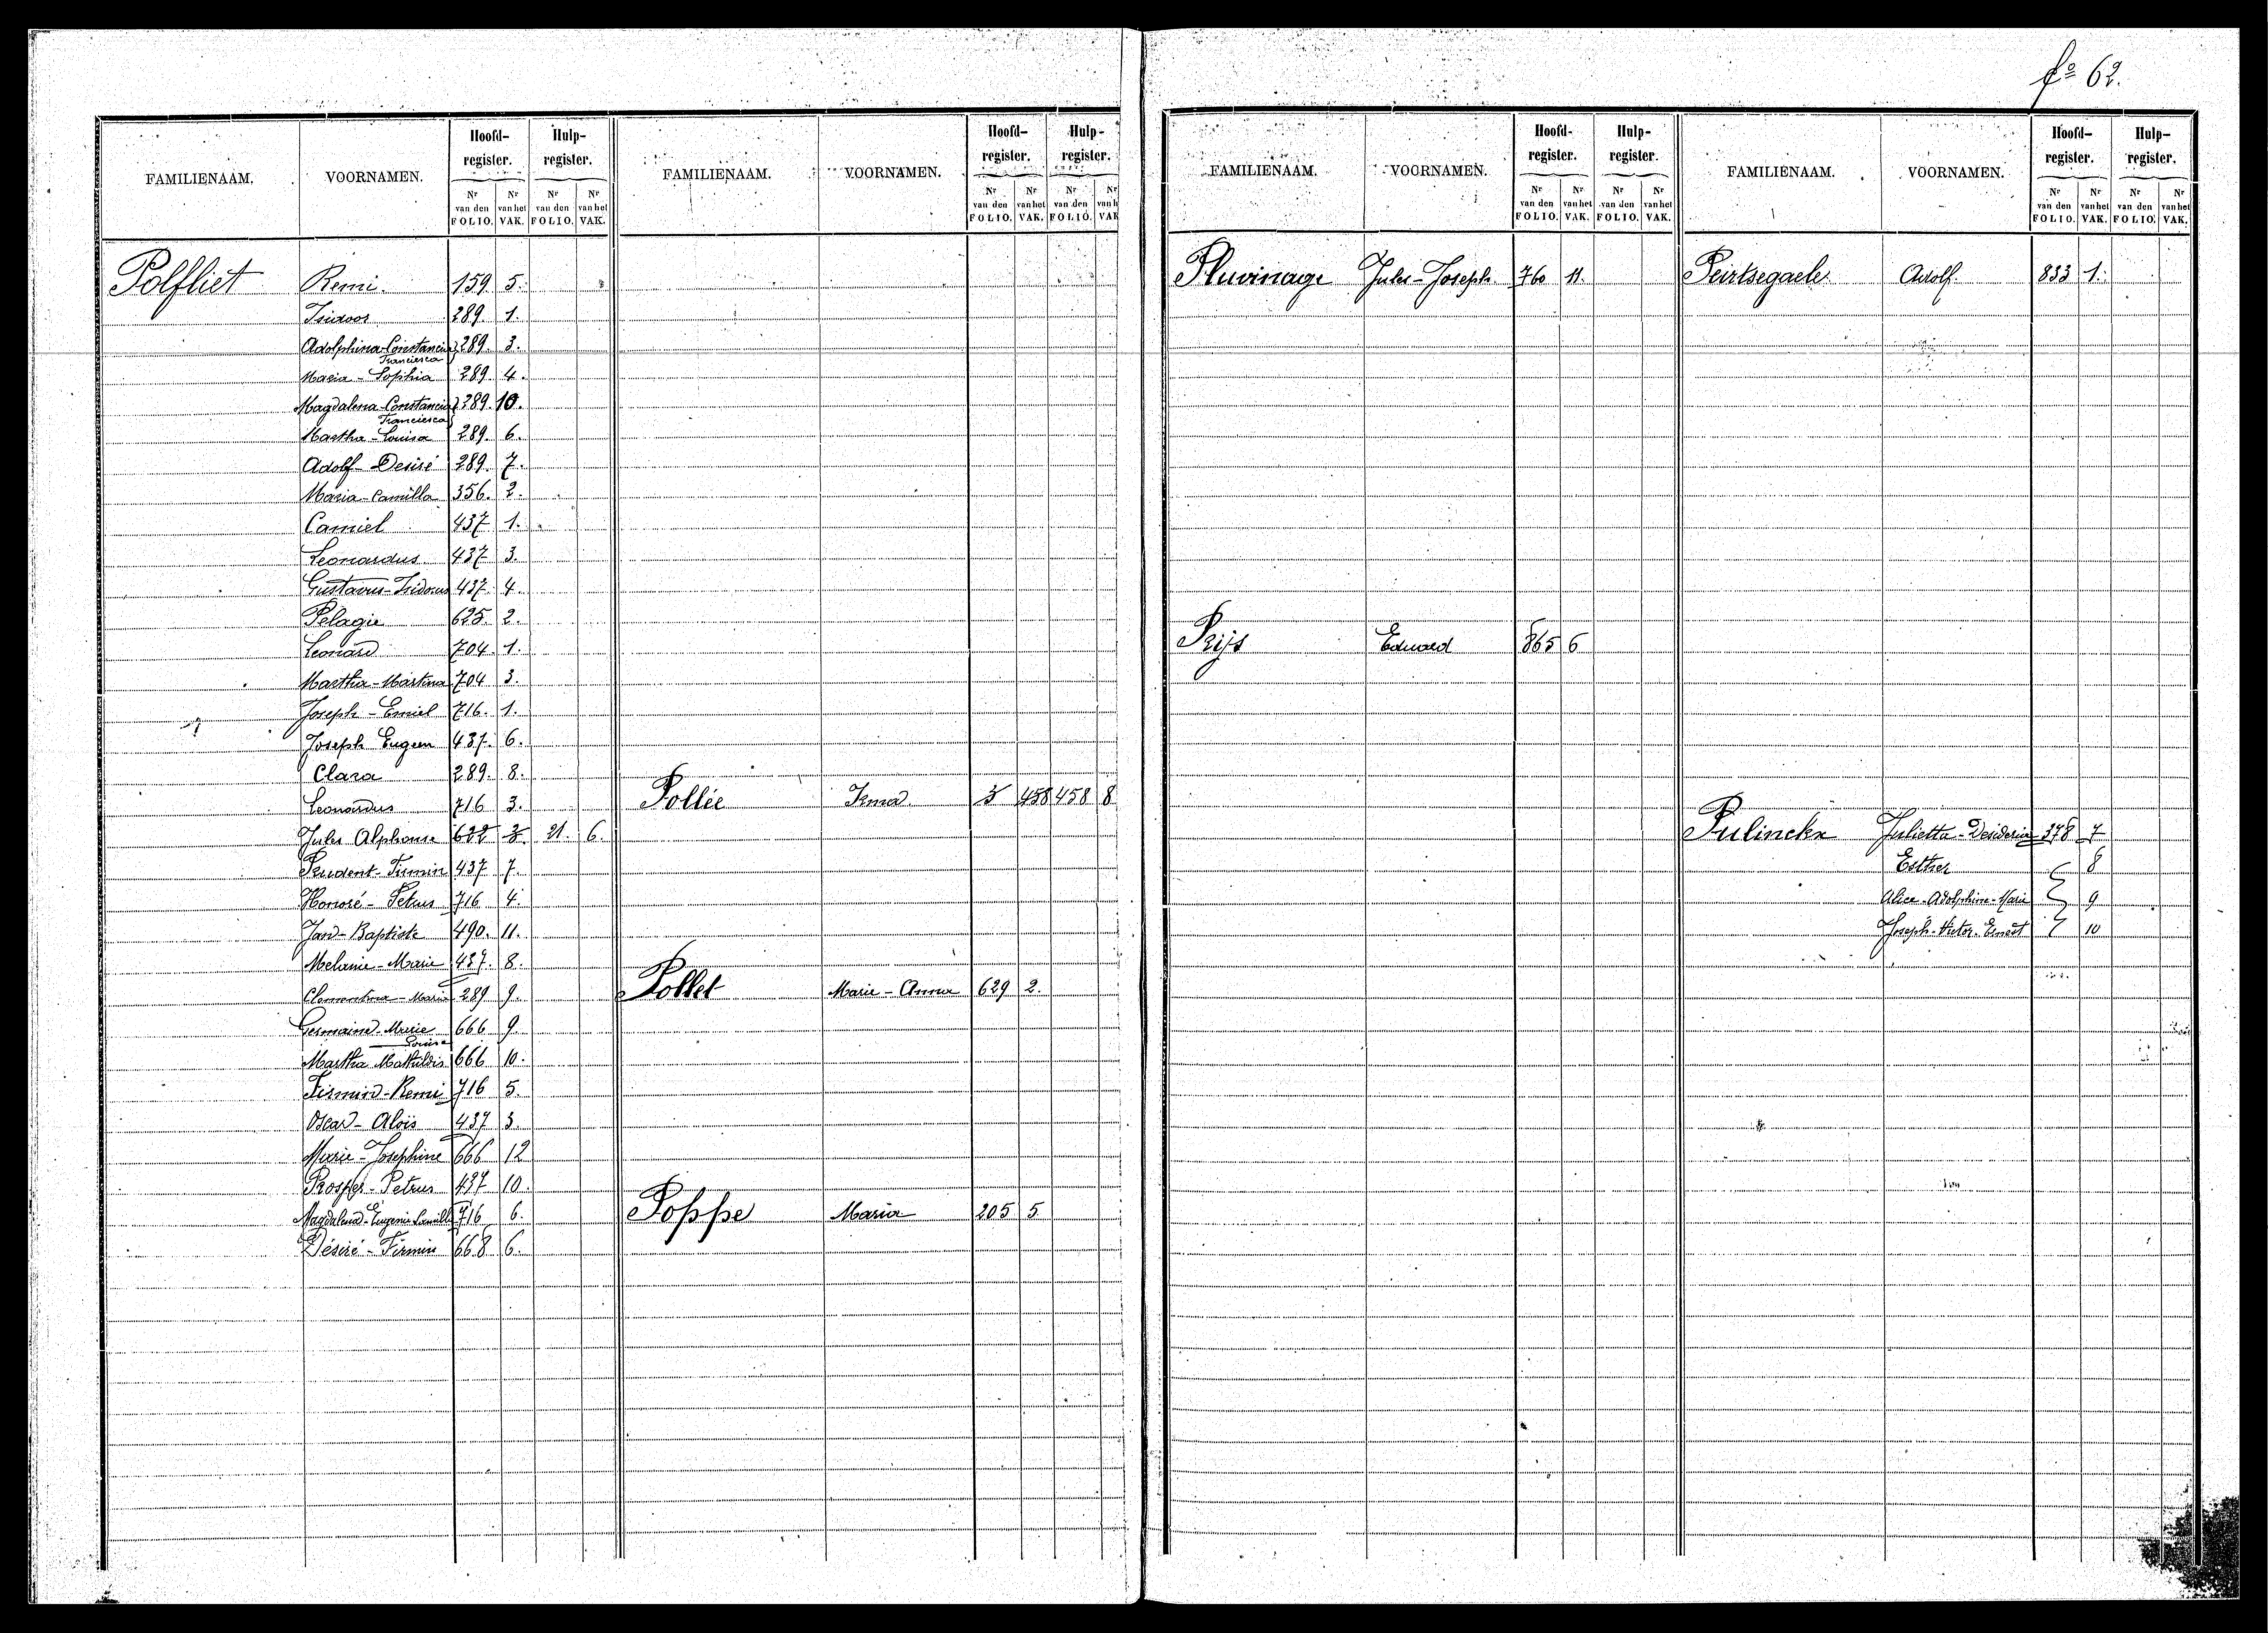 fo 62.
FAMILIENAAM. VOORNAMEN. Hoofd-register. Hulp-register.
Nr van den FOLIO. Nr van het VAK. Nr van den FOLIO. Nr van het VAK.
Polfliet Remi. 159 5.
Isidoor 289. 1.
Adolphina-Constancia Franciesca 289. 3.
Maria-Sophia 289. 4.
Magdalena-Constancia Franciesca 289. 10.
Martha-Louisa 289. 6.
Adolf-Desiré 289. 7.
Maria-Camilla 356. 2.
Camiel 437 1.
Leonardus 437 3.
Gustavus-Isidorus 437 4.
Pelagie 625 2.
Leonard 704. 1.
Martha-Martina 704 3.
Joseph-Emiel 716. 1.
Joseph Eugeen 437. 6.
Clara 289. 8.
Leonardus 716 3.
Jules Alphonse 622 3. 21. 6.
Prudent-Firmin 437 7.
Honoré-Petrus 716 4.
Jan-Baptiste 490. 11.
Melanie-Marie 437. 8.
Clementina-Maria 289 9.
Germaine-Marie Louise 666 9.
Martha Mathildis 666 10.
Firmin-Remi 716 5.
Oscar-Aloïs 437 3.
Marie-Josephine 666 12
Prosper-Petrus 437 10.
Magdalena-Eugenie Camilla 716 6.
Désiré-Firmin 668 6.
FAMILIENAAM. VOORNAMEN. Hoofd-register. Hulp-register.
Nr van den FOLIO. Nr van het VAK. Nr van den FOLIO. Nr van h VAK
Pollée Irma 3 458 458 8
Pollet Marie-Anna 629 2.
Poppe Maria 205 5
FAMILIENAAM. VOORNAMEN. Hoofd-register. Hulp-register.
Nr van den FOLIO. Nr van het VAK. Nr van den FOLIO. Nr van het VAK.
Pluvinage Jules-Joseph 760 11.
Prijs Eduard 865 6
FAMILIENAAM. VOORNAMEN. Hoofd-register. Hulp-register.
Nr van den FOLIO. Nr van het VAK. Nr van den FOLIO. Nr van het VAK.
Peirtsegaele. Adolf 833 1.
Pulinckx Julietta-Desideria 378 7
Esther 8
Alice-Adolphine-Marie 9
Joseph-Victor-Ernest 10